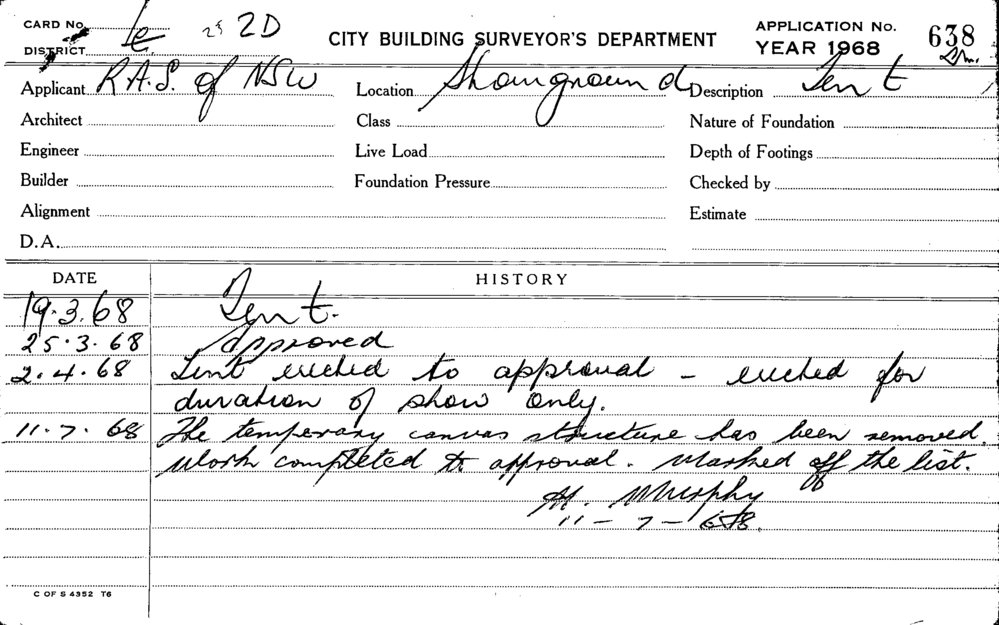 CARD No. 2D
DISTRICT
CITY BUILDING SURVEYOR'S DEPARTMENT
APPLICATION No. 638
YEAR 1968
Applicant R.A.S. of NSW
Location Showground
Description Tent
Architect
Class
Nature of Foundation
Engineer
Live Load
Depth of Footings
Builder
Foundation Pressure
Checked by
Alignment
Estimate
D.A.
DATE HISTORY
19.3.68 Tent.
25.3.68 Approved
2.4.68 Tent erected to approval - erected for
duration of show only.
11.7.68 The temporary canvas structure has been removed.
Work completed to approval. Marked off the list.
Murphy
11-7-68.
C OF S 4352 T6